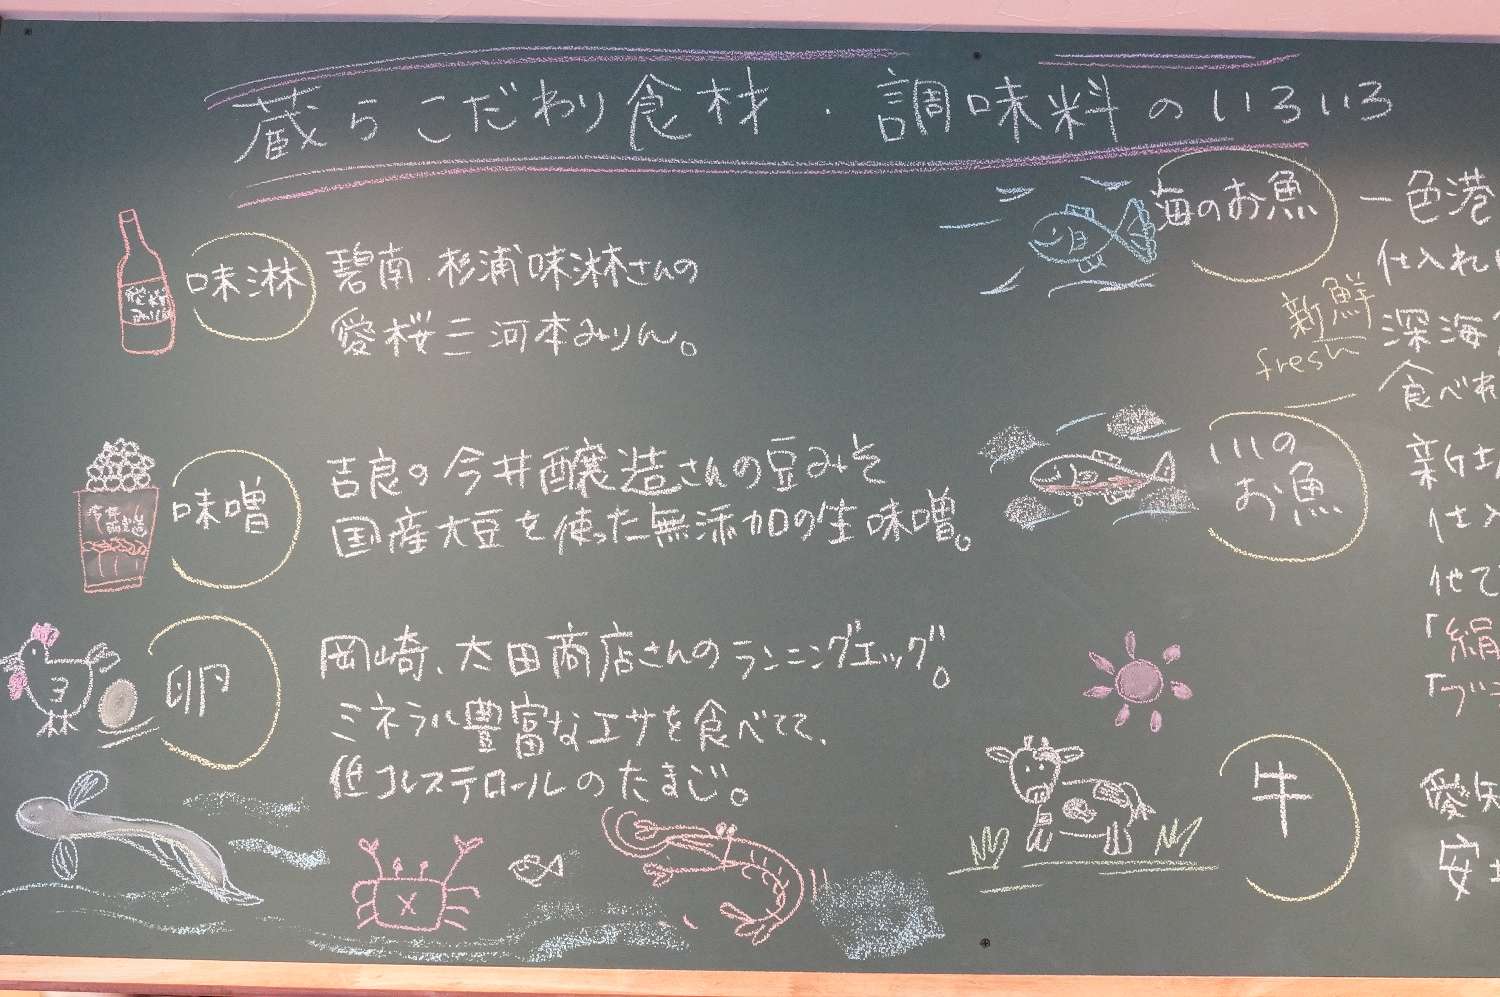 蔵らこだわり食材・調味料のいろいろ
味淋
碧南、杉浦味淋さんの
愛桜三河本みりん。
味噌
吉良の今井醸造さんの豆みそ
国産大豆を使った無添加の生味噌。
卵
岡崎、太田商店さんのランニングエッグ。
ミネラル豊富なエサを食べてて、
低コレステロールのたまご。
海のお魚
一色港
仕入れ
新鮮
fresh
深海
食べれ
川の
お魚
新城
仕入
他で
「絹
「
牛
愛知
安